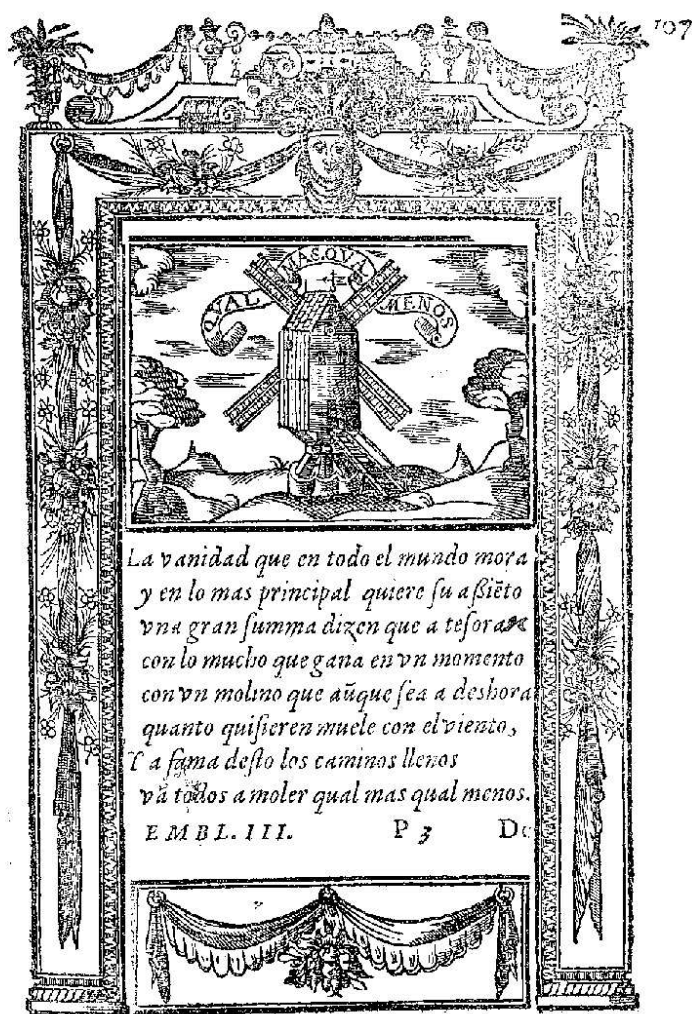 107
QVAL MAS QVA MENOS
La vanidad que en todo el mundo mora
y en lo mas principal quiere ſu aßiẽto
vna gran ſumma dizen que a teſora
con lo mucho que gana en vn momento
con vn molino que aũque ſea a deshora
quanto quiſieren muele con el viento,
Y a fama deſto los caminos llenos
vã todos a moler qual mas qual menos.
EMBL. III. P 3 De